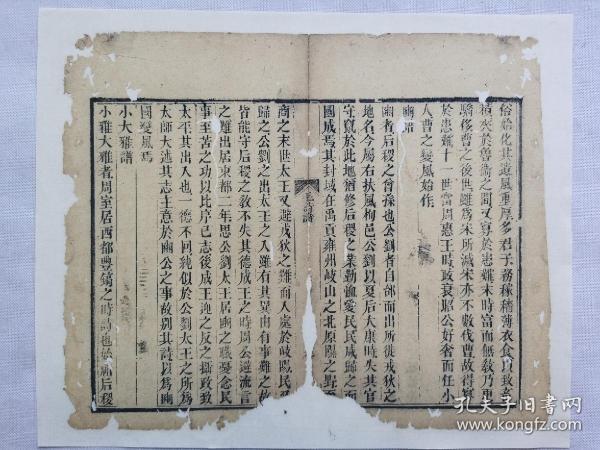 俗始化其遺風重厚多君子務稼穡薄衣食以致畜
積夾於魯衛之間又寡於患難末時富而無教乃更
驕侈曹之後世雖為宋所滅宋亦不數伐曹故得寡
於患難十一世當周惠王時政衰昭公好奢而任小
人曹之變風始作
豳譜
豳者后稷之曾孫也公劉者自邰而出所徙戎狄之
地名今屬右扶風栒邑公劉以夏后大康時失其官
守竄於此地猶修后稷之業勤恤愛民民咸歸之而
國成焉其封域在禹貢雍州岐山之北原隰之野
商之末世太王又避戎狄之難而入處於岐陽民
歸之公劉之出太王之入雖有其異由有事難之故
皆能守后稷之教不失其德成王之時周公避流言
之難出居東都二年思公劉太王居豳之職憂念民
事至苦之功以比序己志後成王迎之反之攝政致
太平其出入也一德不回純似於公劉太王之所為
太師大述其志主意於豳公之事故別其詩以為豳
國變風焉
小大雅譜
小雅大雅者周室居西都豐鎬之時詩也始 后稷
孔夫子旧书网
www.kongfz.com